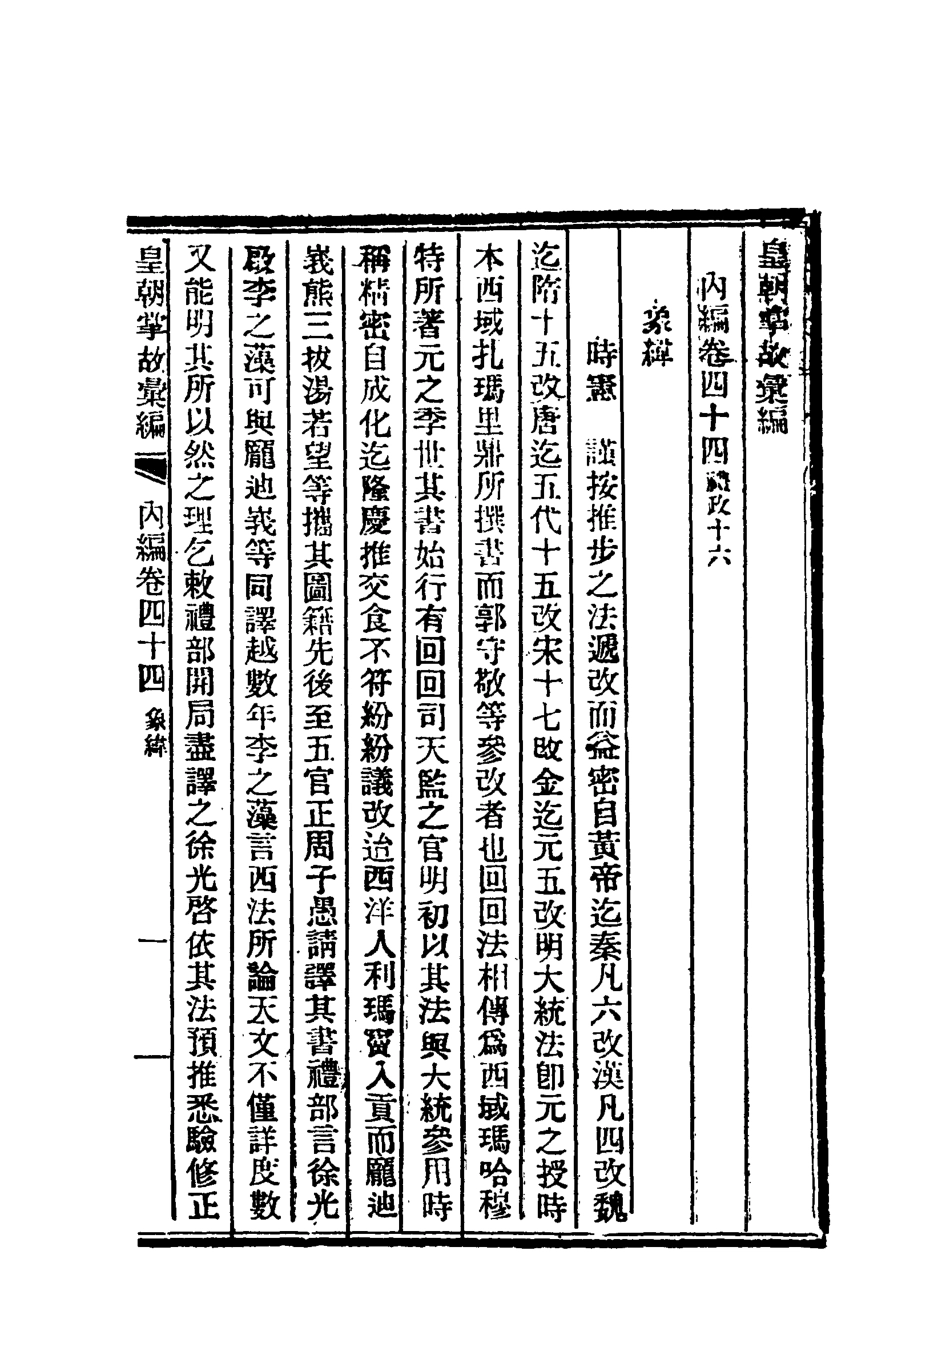 皇朝掌故彙編
內編卷四十四禮政十六
象緯
時憲　謹按推步之法遞改而益密自黃帝迄秦凡六改漢凡四改魏
迄隋十五改唐迄五代十五改宋十七改金迄元五改明大統法卽元之授時
本西域扎瑪里鼎所撰書而郭守敬等參改者也回回法相傳爲西域瑪哈穆
特所著元之季世其書始行有回回司天監之官明初以其法與大統參用時
稱精密自成化迄隆慶推交食不符紛紛議改迨西洋人利瑪竇入貢而龐迪
峩熊三拔湯若望等攜其圖籍先後至五官正周子愚請譯其書禮部言徐光
啟李之藻可與龐迪峩等同譯越數年李之藻言西法所論天文不僅詳度數
又能明其所以然之理乞敕禮部開局盡譯之徐光啓依其法預推悉驗修正
皇朝掌故彙編　內編卷四十四 象緯　一